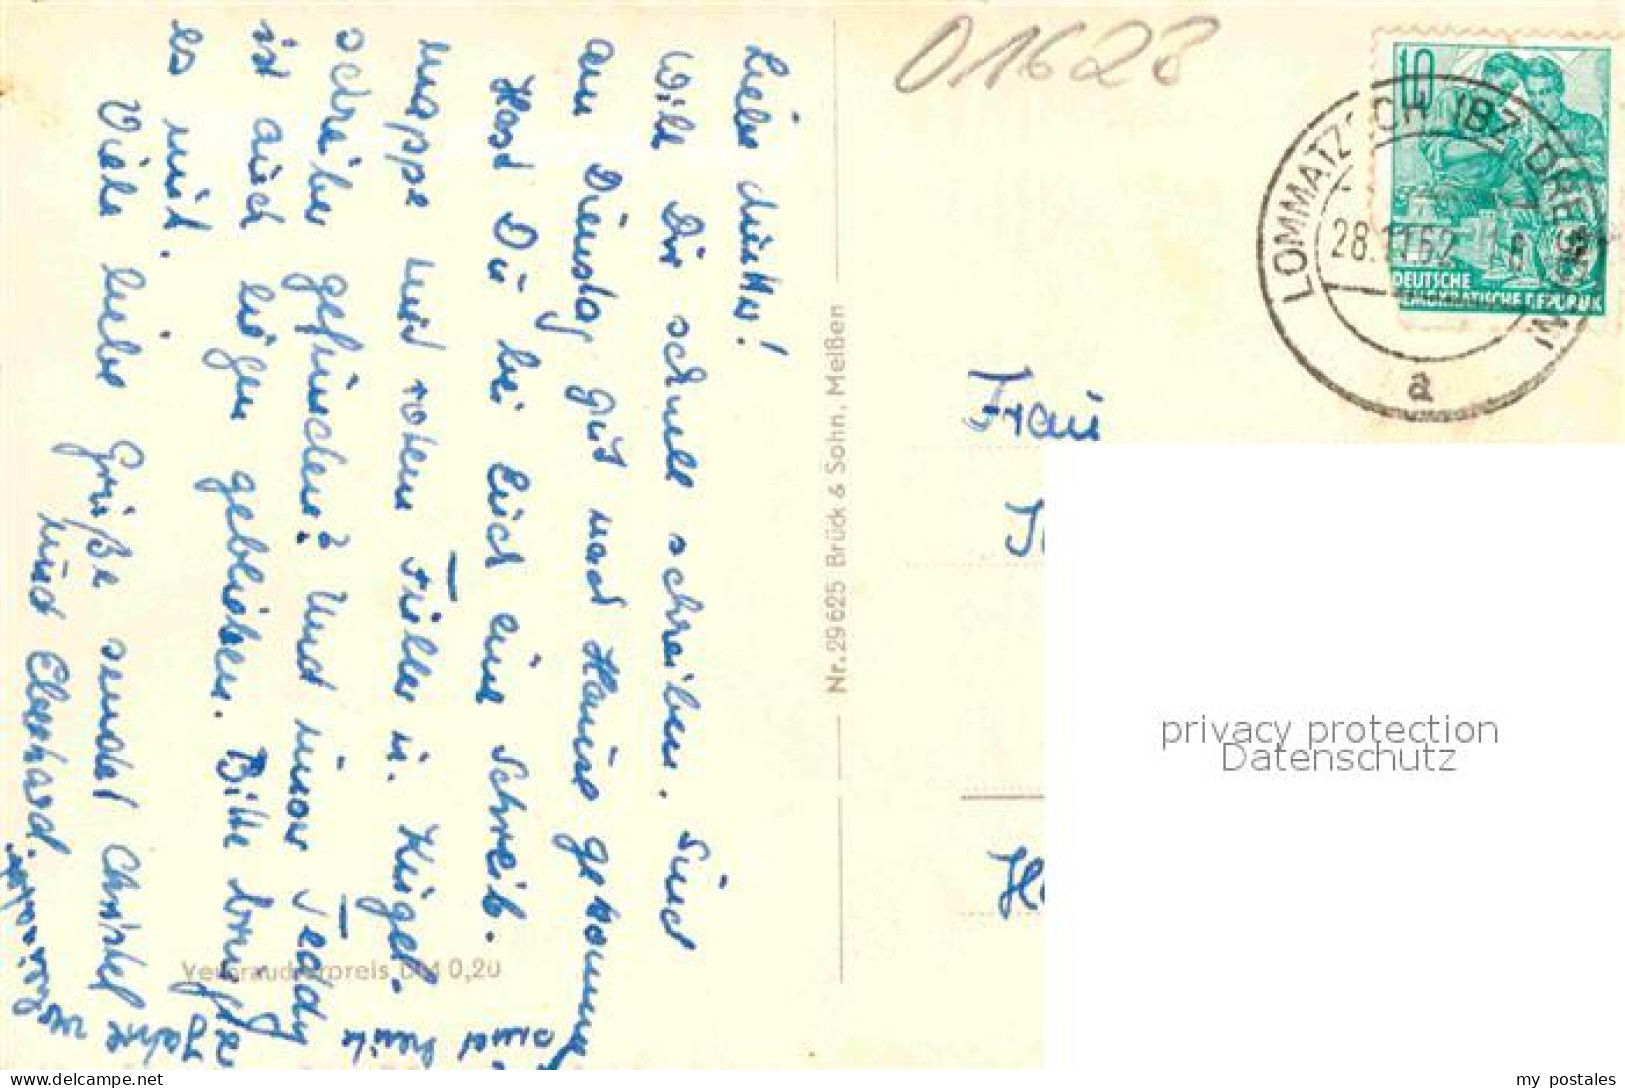 Liebe Mutter!
Will Dir schnell schreiben. Sind
am Dienstag gut nach Hause gekommen
Hast Du bei Euch eine Schreib-
mappe und roten Füller u. Kugel-
schreiber gefunden? Und unser Teddy
ist auch liegen geblieben. Bitte bringe
es mit.
Viele liebe Grüße sendet Christel
und Eberhard.
sind heute
Jahre
Nr. 29625 Brück & Sohn, Meißen
Verbraucherpreis DM 0,20
01628
10
DEUTSCHE
DEMOKRATISCHE REPUBLIK
LOMMATZSCH (BZ DRESDEN)
28.11.62
a
Frau
privacy protection
Datenschutz
my postales